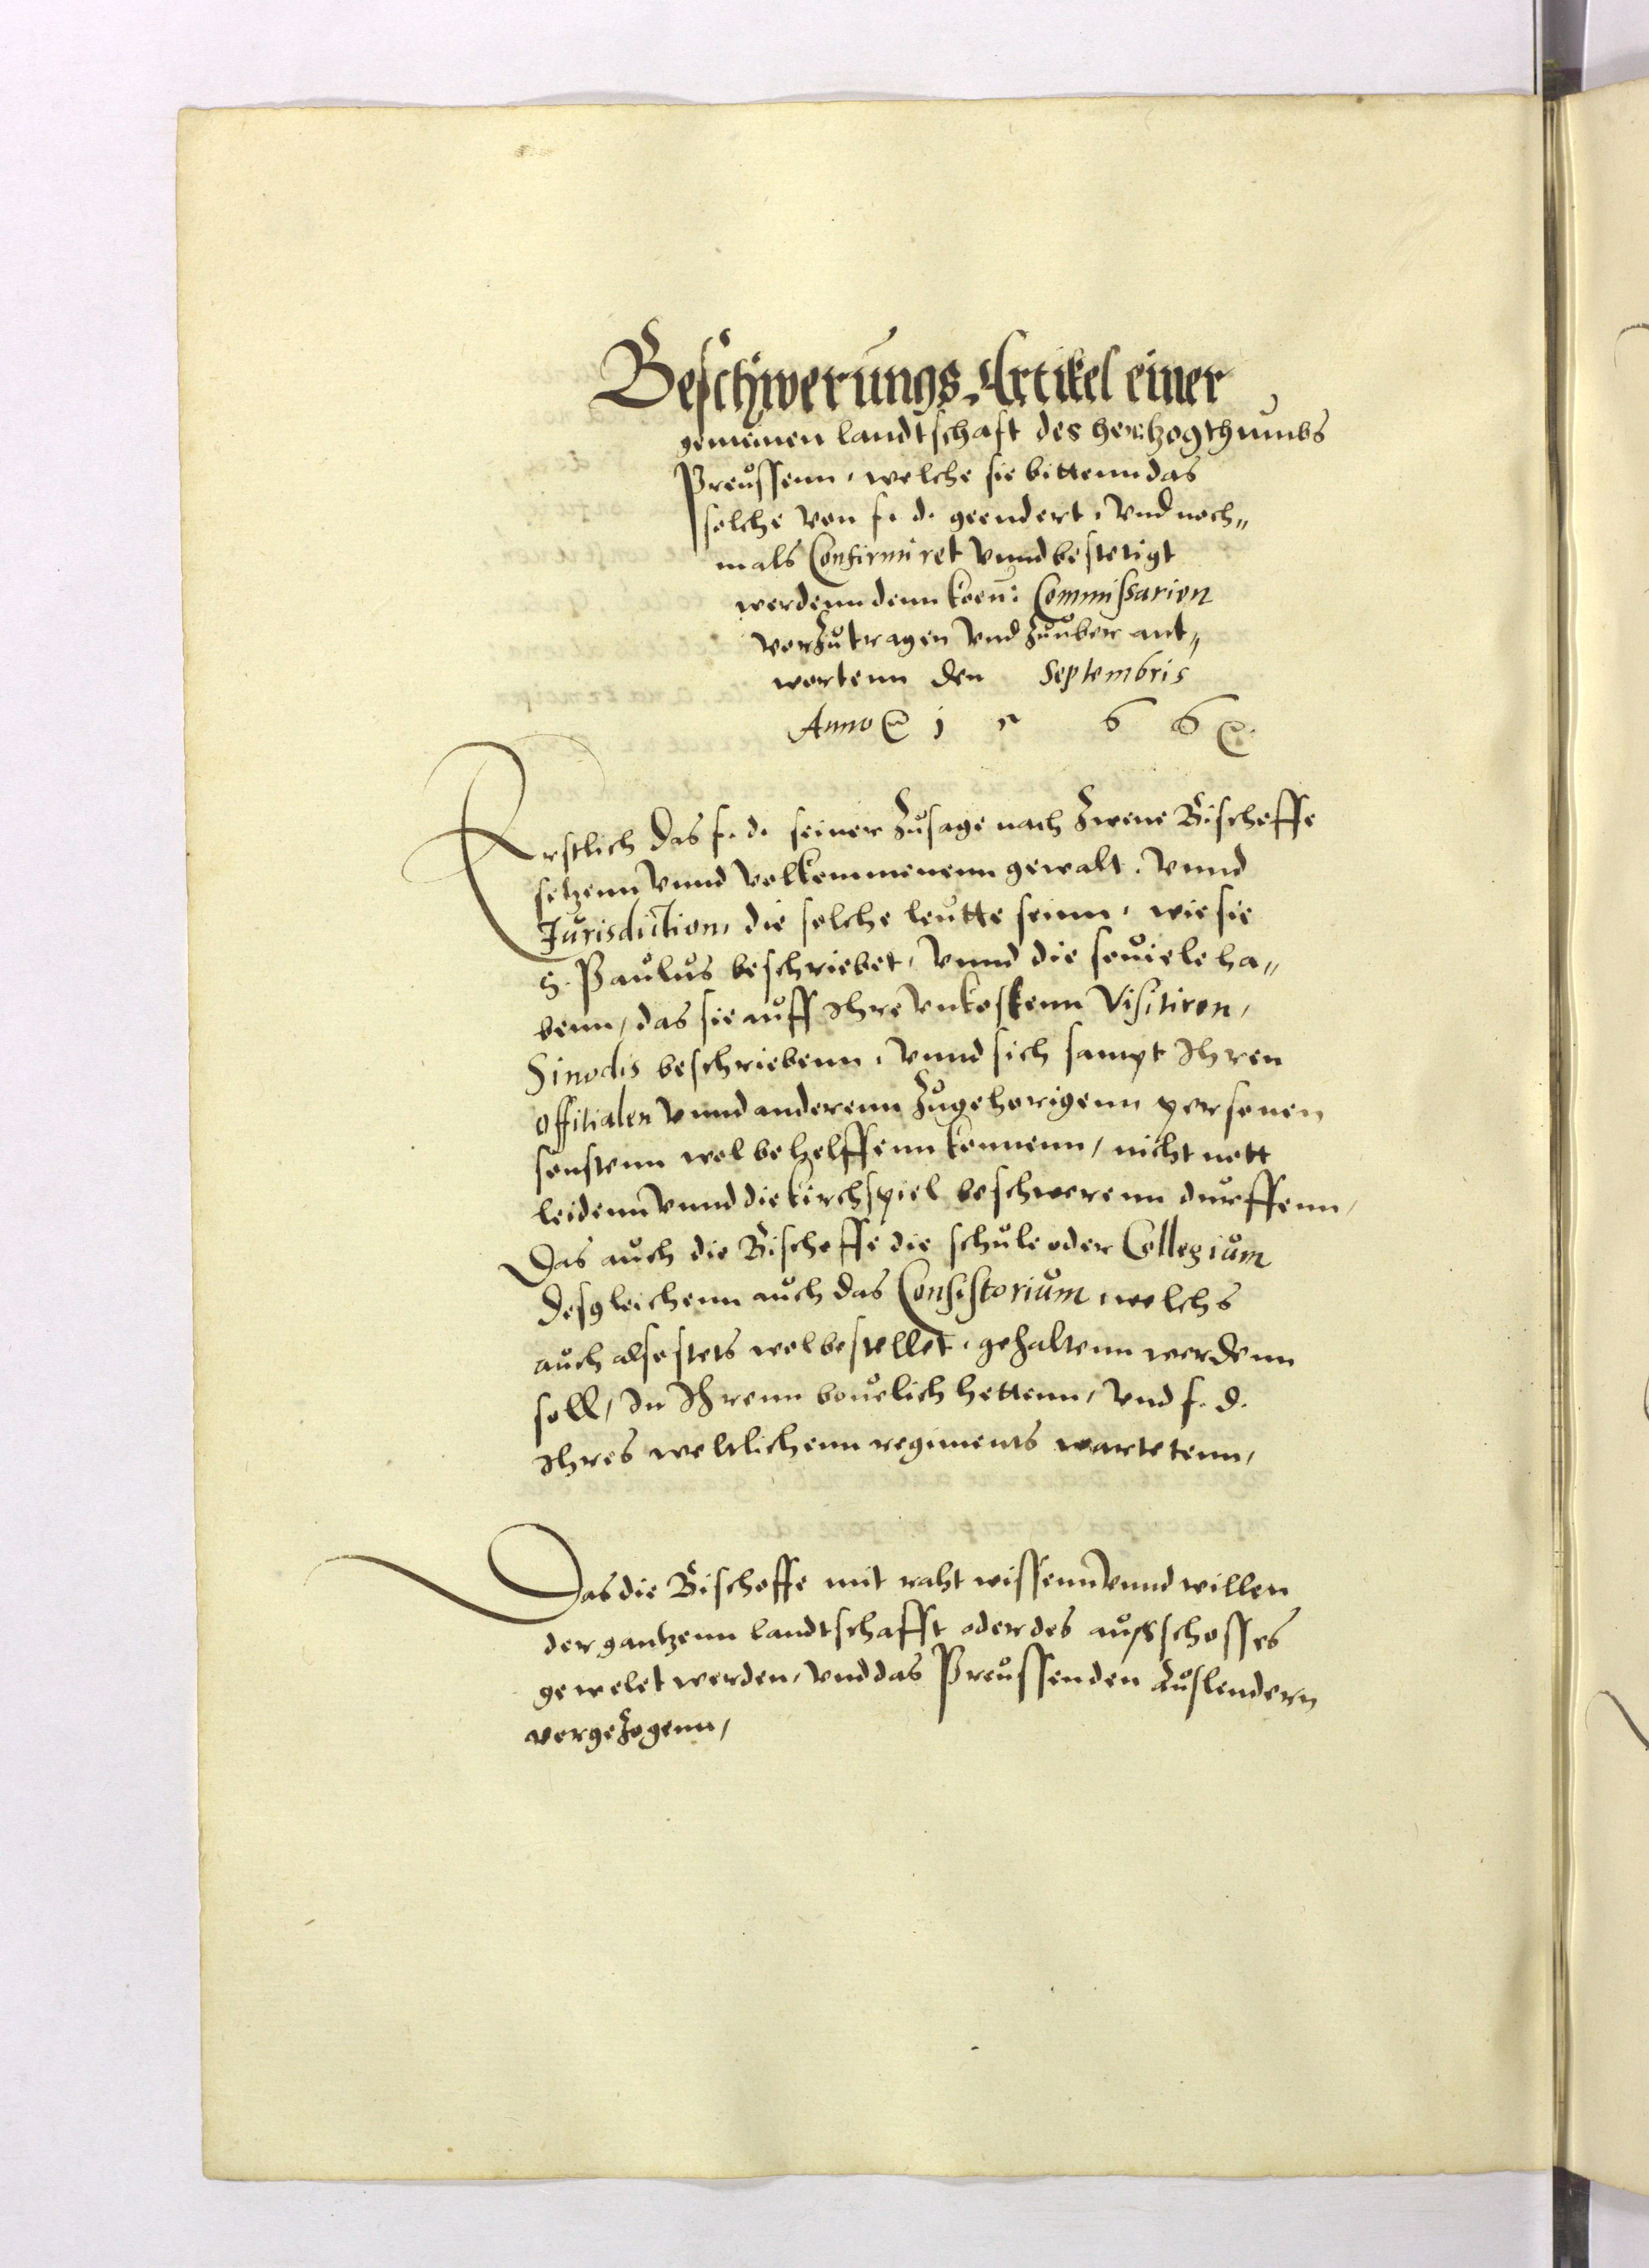 Beschwerungs Artikel einer
gemeinen landtschaft des hertzogthumbs
Preussenn, welche sie bittenn das
solche von f. d. geendert, vnd noch„
mals Confirmiret vnnd bestetigt
werdenn denn koen: Commissarien
vorzutragen vnd zuuber ant„
wortenn den Septembris
Anno 1 5 6 6
Erstlich das f. d. seiner zusage nach zwene Bischoffe
setzenn vnnd volkommenenn gewalt, vnnd
Jurisdiction, die solche leutte seinn, wie sie
S. Paulus beschriebet, vnnd die souiele ha„
benn, das sie auff Ihre vnkostenn Visitiren,
Sinodis beschriebenn, vnnd sich sampt Ihren
Offitialen vnnd anderenn zugehorigenn personen
sonstenn wol behelffenn konnenn, nicht nott
leidenn vnnd die kirchspiel beschwerenn durffenn,
Das auch die Bischoffe die schule oder Collegium
desgleichenn auch das Consistorium welchs
auch also stets wol bestellet, gehaltenn werdenn
soll, In Ihrenn beuelich hettenn, vnd f. d.
Ihres weltlichenn regiments wartetenn,
Das die Bischoffe mit raht wissenn vnnd willen
der gantzenn landtschafft oder des außschosses
gewelet werden, vnd das Preussen den Auslendern
vorgezogenn,